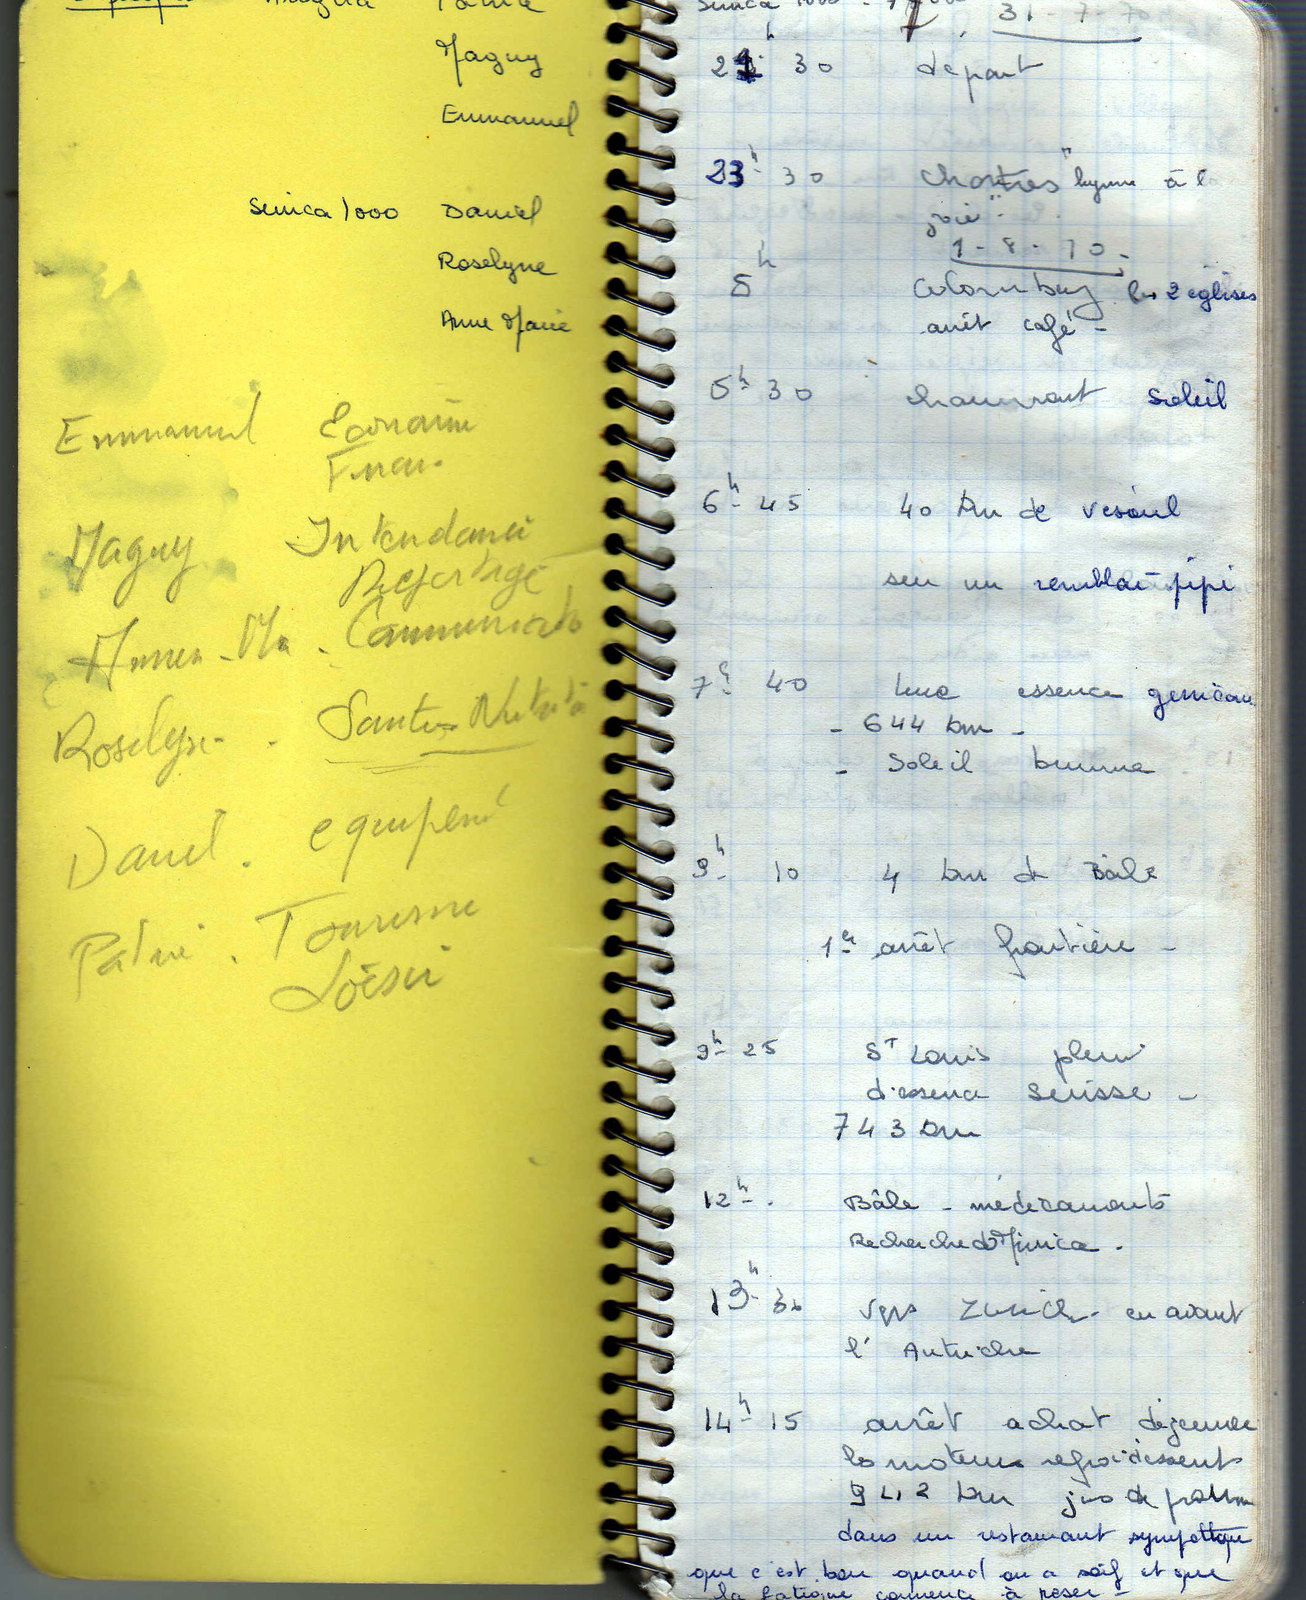 Patrice
Maguy
Emmanuel
Simca 1000 Daniel
Roselyne
Anne Marie
Emmanuel
Maguy Intendance
Reportage
Anne-Ma.
Roselyne. Santé
Daniel. équipemt
Patrice. Tourisme
Loisir
31-7-70
21h 30 départ
23h 30 Chartres "hymne à la
joie"-
1-8-70-
5h Colombey les 2 églises
arrêt café -
5h 30 Chaumont Soleil
6h 45 40 km de Vesoul
sur un remblai pipi
7h 40 Lure essence
- 644 km -
- Soleil brume
9h 10 4 km de Bâle
1er arrêt frontière -
9h 25 St Louis plein
d'essence Suisse -
743 km
12h. Bâle - médicaments
Recherche d'
13h 30 vers Zurich - en avant
l'Autriche
14h 15 arrêt achat déjeuner
les moteurs refroidissent
942 km jus de pomme
dans un restaurant sympathique
que c'est bon quand on a soif et que
la fatigue commence à peser -